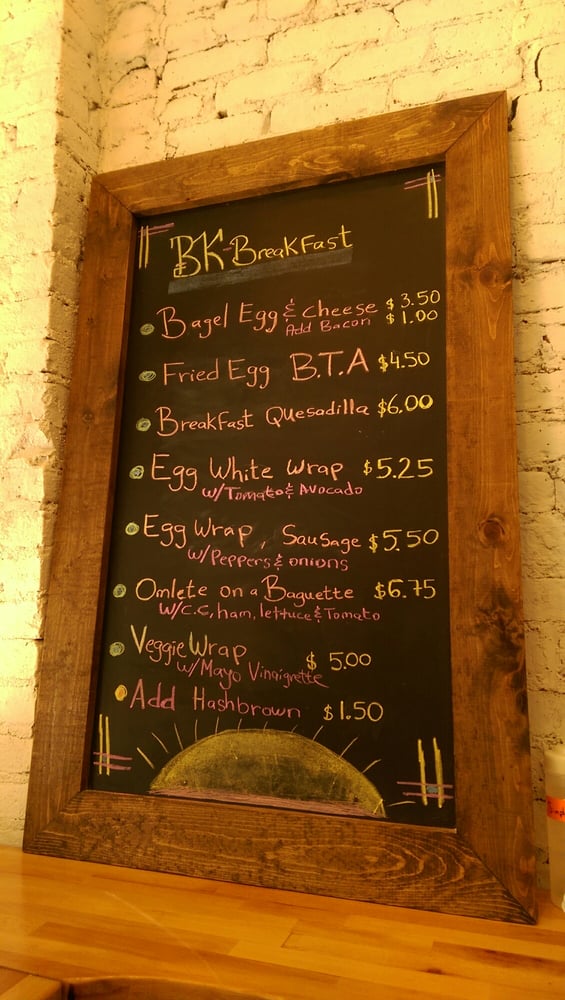 BK-Breakfast
Bagel Egg & cheese $3.50
Add Bacon $1.00
Fried Egg B.T.A $4.50
Breakfast Quesadilla $6.00
Egg White Wrap $5.25
w/Tomato & Avocado
Egg Wrap, Sausage $5.50
w/Peppers & onions
Omlete on a Baguette $6.75
w/c.c, ham, lettuce & Tomato
Veggie Wrap $5.00
w/Mayo Vinaigrette
Add Hashbrown $1.50